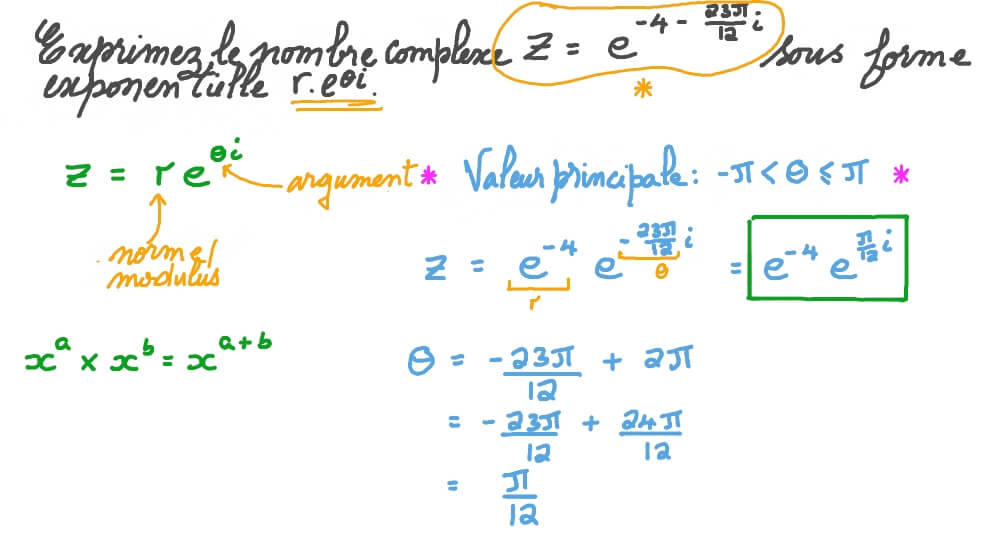 Exprimez le nombre complexe Z = e^{-4 - \frac{23π}{12}i} sous forme
exponentielle r.e^{θi}.
*
z = re^{θi}
argument
norme/
modulus
* Valeur principale: -π < θ ≤ π *
z = e^{-4} e^{-\frac{23π}{12}i} = e^{-4} e^{\frac{π}{12}i}
r
θ
x^a × x^b = x^{a+b}
θ = -\frac{23π}{12} + 2π
= -\frac{23π}{12} + \frac{24π}{12}
= \frac{π}{12}